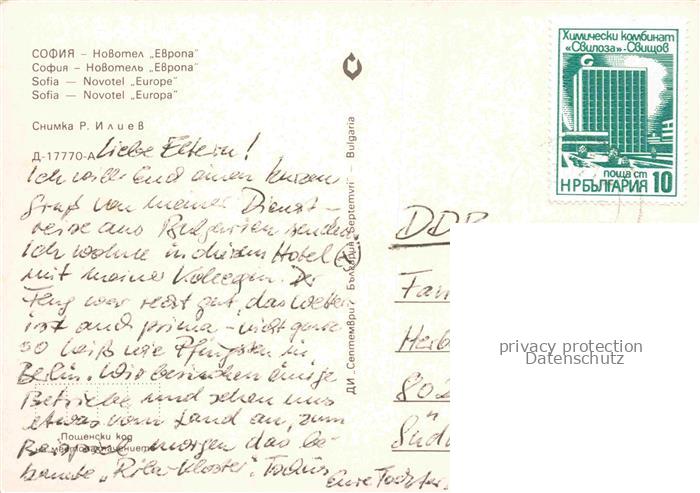 СОФИЯ – Новотел „Европа“
София – Новотель „Европа“
Sofia – Novotel „Europe“
Sofia – Novotel „Europa“
Снимка Р. Илиев
Д-17770-А
Liebe Eltern!
Ich will Euch einen kurzen
Gruß von meiner Dienst-
reise aus Bulgarien senden.
Ich wohne in diesem Hotel (x)
mit meiner Kollegin. Der
Flug war recht gut, das Wetter
ist auch prima – nicht ganz
so heiß wie Pfingsten in
Berlin. Wir besuchen einige
Betriebe und sehen uns
etwas vom Land an, zum
Beispiel morgen das be-
kannte „Rila-Kloster“. Tschüs
Eure Tochter
Пощенски код
на местоназначението
ДИ „Септември“ България Septemvri – Bulgaria
Химически комбинат
„Свилоза“-Свищов
поща ст
НР БЪЛГАРИЯ 10
DDR
Fam
Herb
802
Süd
privacy protection
Datenschutz